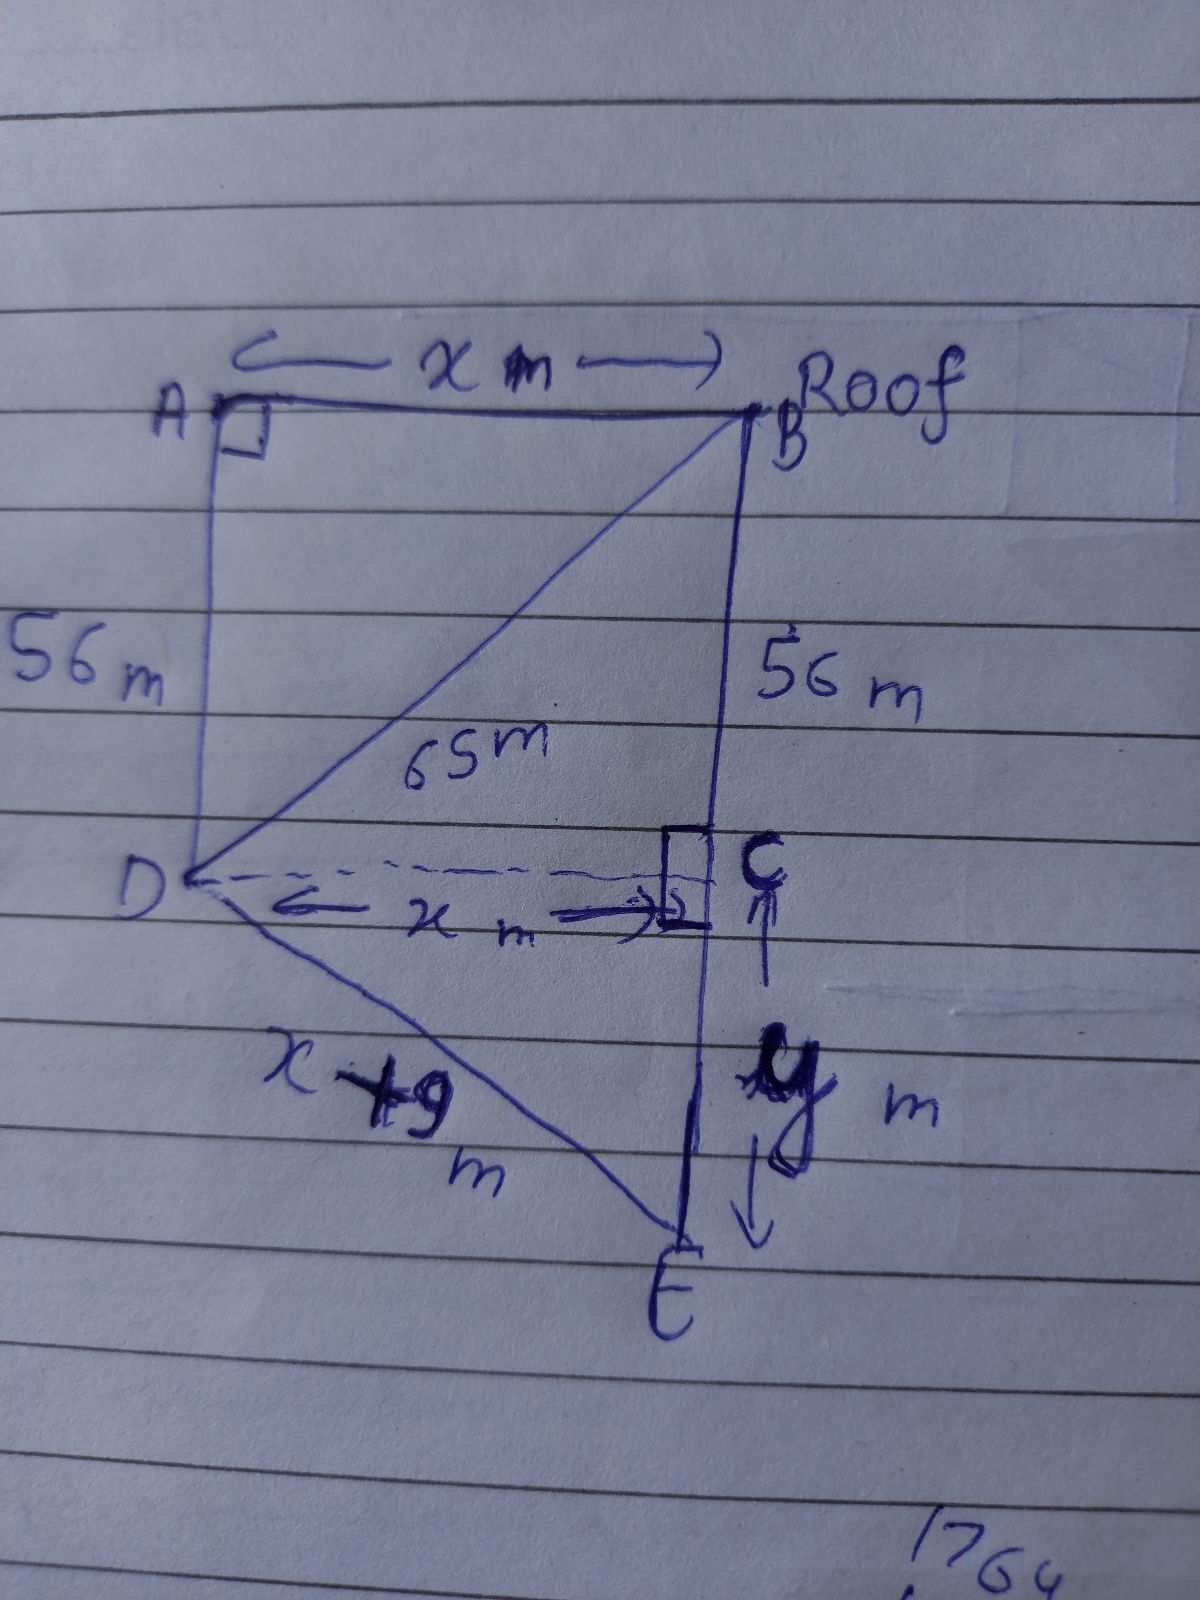 x m
A
B
Roof
56 m
56 m
65 m
D
C
x m
x + 9
m
y m
E
1764